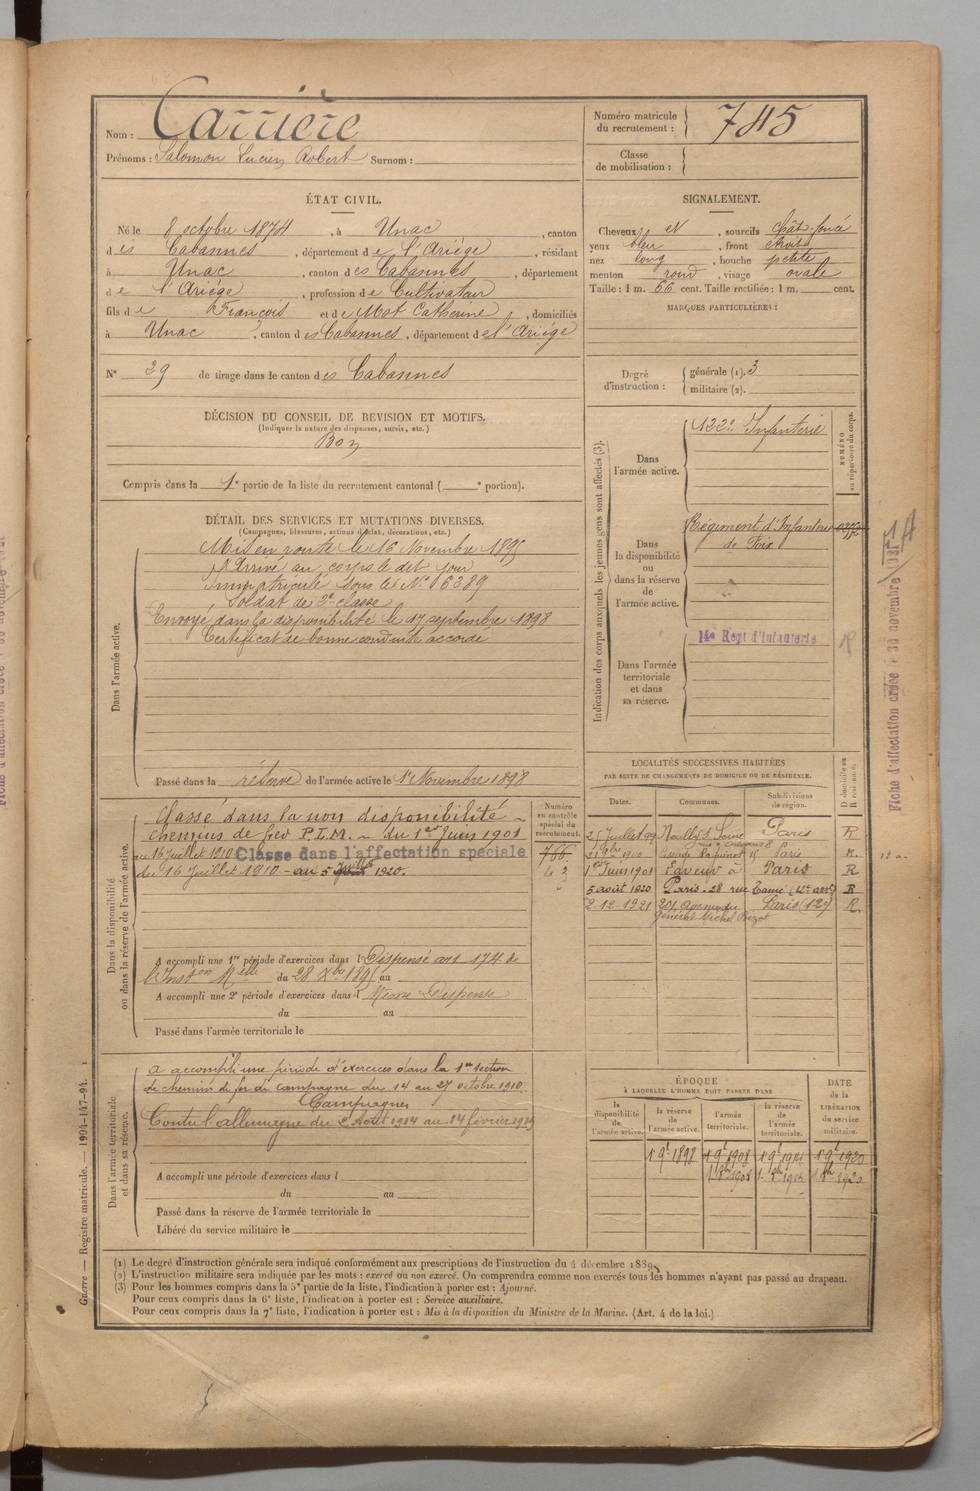 Nom : Carrière
Prénoms : Salomon Lucien Robert Surnom :
Numéro matricule du recrutement : 745
Classe de mobilisation :
ÉTAT CIVIL.
Né le 8 octobre 1874, à Unac, canton
des Cabannes, département de l'Ariége, résidant
à Unac, canton des Cabannes, département
de l'Ariége, profession de Cultivateur
fils de François et de Mot Catherine, domiciliés
à Unac, canton des Cabannes, département de l'Ariége
N° 29 de tirage dans le canton des Cabannes
SIGNALEMENT.
Cheveux et, sourcils Chât. foncé
yeux bleu, front étroit
nez long, bouche petite
menton rond, visage ovale
Taille : 1 m. 66 cent. Taille rectifiée : 1 m. cent.
MARQUES PARTICULIÈRES :
Degré d'instruction : générale (1). 3
militaire (2).
DÉCISION DU CONSEIL DE REVISION ET MOTIFS.
(Indiquer la nature des dispenses, sursis, etc.)
Bon
Compris dans la 1e partie de la liste du recrutement cantonal ( e portion).
DÉTAIL DES SERVICES ET MUTATIONS DIVERSES.
(Campagnes, blessures, actions d'éclat, décorations, etc.)
Dans l'armée active.
Mis en route le 16 Novembre 1895
Arrivé au corps le dit jour
Immatriculé sous le N° 6389
Soldat de 2e classe
Envoyé dans la disponibilité le 17 septembre 1898
Certificat de bonne conduite accordé
Passé dans la réserve de l'armée active le 1r Novembre 1898
Indication des corps auxquels les jeunes gens sont affectés (3).
NUMÉRO au répertoire du corps.
Dans l'armée active.
122e Infanterie
Dans la disponibilité ou dans la réserve de l'armée active.
Régiment d'Infanterie
de Foix
Dans l'armée territoriale et dans sa réserve.
14e Regt d'Infanterie
R
Dans la disponibilité ou dans la réserve de l'armée active.
Classé dans la non disponibilité
chemins de fer P.L.M. - du 1er Juin 1901
au 16 juillet 1910 Classé dans l'affectation spéciale
du 16 Juillet 1910 - au 5 Juillet 1920.
Numéro au contrôle spécial du recrutement.
766
A accompli une 1re période d'exercices dans l Dispensé art 174 de
l'Inston Melle du 28 Xbre 1895 au
A accompli une 2e période d'exercices dans l Même Dispense
du au
Passé dans l'armée territoriale le
LOCALITÉS SUCCESSIVES HABITÉES
PAR SUITE DE CHANGEMENTS DE DOMICILE OU DE RÉSIDENCE.
Dates. Communes. Subdivisions de région. D domicile ou R résidence.
25 Juillet 99 Neuilly S. Seine Paris R
1er Juin 1901 Paris R
5 août 1920 Paris. 28 rue Taine (12e arrt) R
2.12.1921 201 Avenue du Général Michel Bizot Paris (12e) R.
Dans l'armée territoriale et dans sa réserve.
A accompli une période d'exercices dans la 1re section
de chemins de fer de campagne du 14 au 27 octobre 1910
Campagnes
Contre l'allemagne du 2 Août 1914 au 14 février 1919
A accompli une période d'exercices dans l
du au
Passé dans la réserve de l'armée territoriale le
Libéré du service militaire le
ÉPOQUE
À LAQUELLE L'HOMME DOIT PASSER DANS
la disponibilité de l'armée active. la réserve de l'armée active. l'armée territoriale. la réserve de l'armée territoriale.
DATE de la LIBÉRATION du service militaire.
1r 9e 1898 1r 9e 1908 1r 9e 1914 1r 9e 1920
(1) Le degré d'instruction générale sera indiqué conformément aux prescriptions de l'instruction du 4 décembre 1889.
(2) L'instruction militaire sera indiquée par les mots : exercé ou non exercé. On comprendra comme non exercés tous les hommes n'ayant pas passé au drapeau.
(3) Pour les hommes compris dans la 5e partie de la liste, l'indication à porter est : Ajourné.
Pour ceux compris dans la 6e liste, l'indication à porter est : Service auxiliaire.
Pour ceux compris dans la 7e liste, l'indication à porter est : Mis à la disposition du Ministre de la Marine. (Art. 4 de la loi.)
Guerre — Registre matricule. — 1994-147-94.
Fiche d'affectation créée le 30 novembre 1921